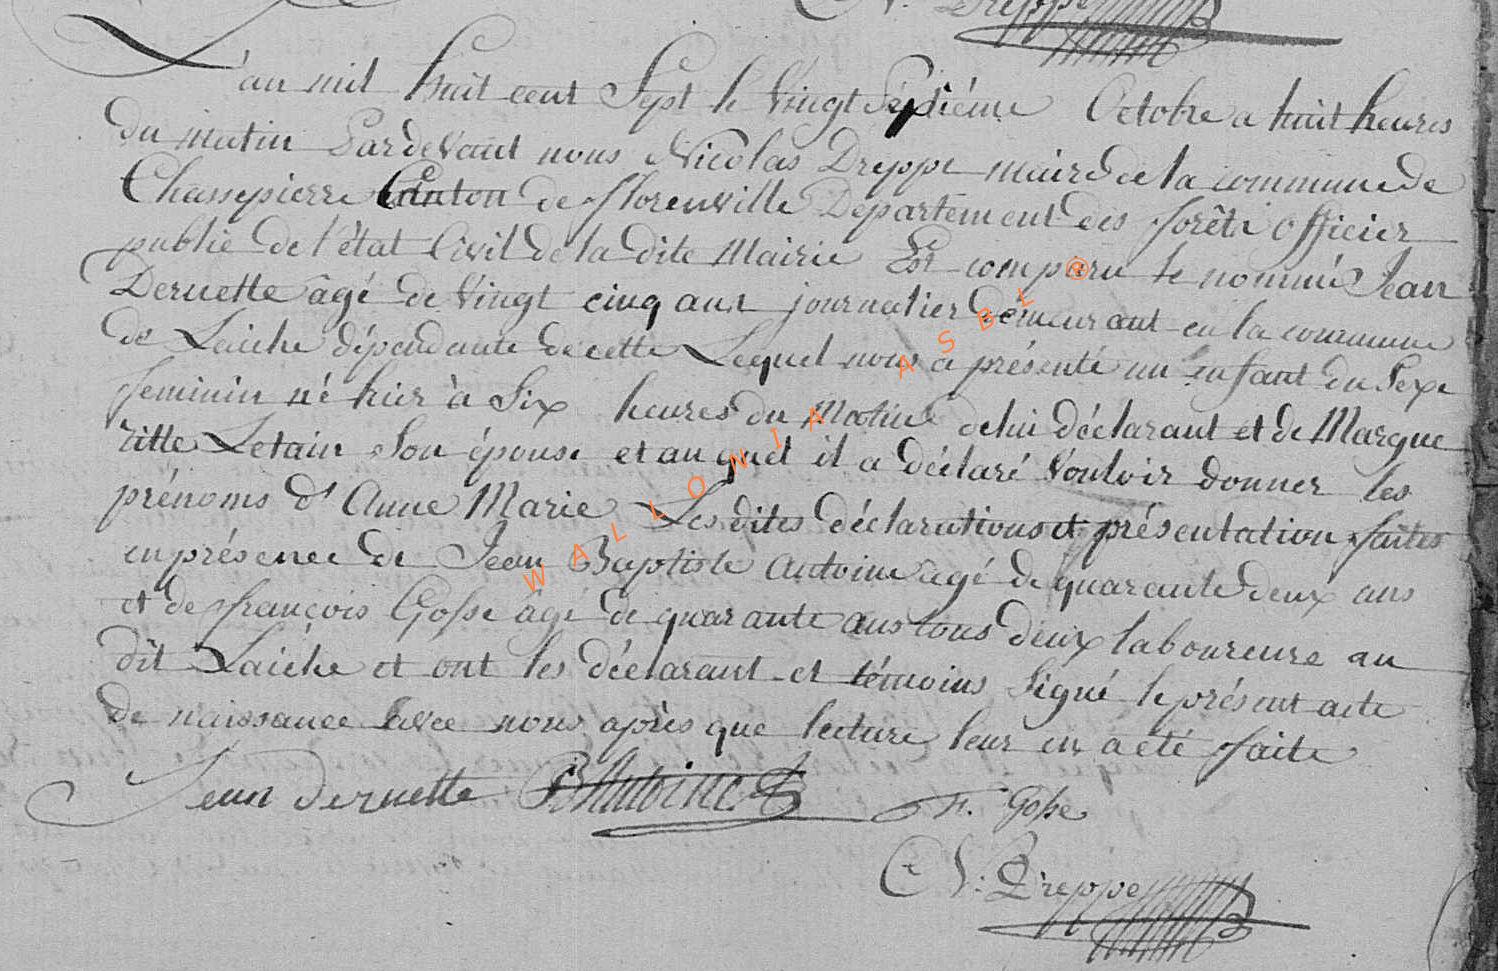 N. Dreppe
L'an mil huit cent Sept le Vingt Septiéme Octobre a huit heures
du matin Pardevant nous Nicolas Dreppe maire de la commune de
Chassepierre Canton de florenville Departement des forêts officier
public de l'état Civil de la dite Mairie Est comparu le nommé Jean
Dernette âgé de Vingt cinq ans journalier demeurant en la commune
de Laiche dépendante de cette Lequel nous a présenté un enfant du Sexe
feminin né hier à Six heures du Matin de lui déclarant et de Margue
ritte Letain Son épouse et au quel il a déclaré Vouloir donner les
prénoms d'Anne Marie Les dites déclarations et présentation faites
en présence de Jean Baptiste Antoine agé de quarante deux ans
et de françois Gosse âgé de quarante ans tous deux laboureurs au
dit Laiche et ont les déclarant et témoins Signé le présent acte
de naissance avec nous après que lecture leur en a été faite
Jean dernette BAntoine F. Gosse
N. Dreppe
WALLONIA ASBL ®